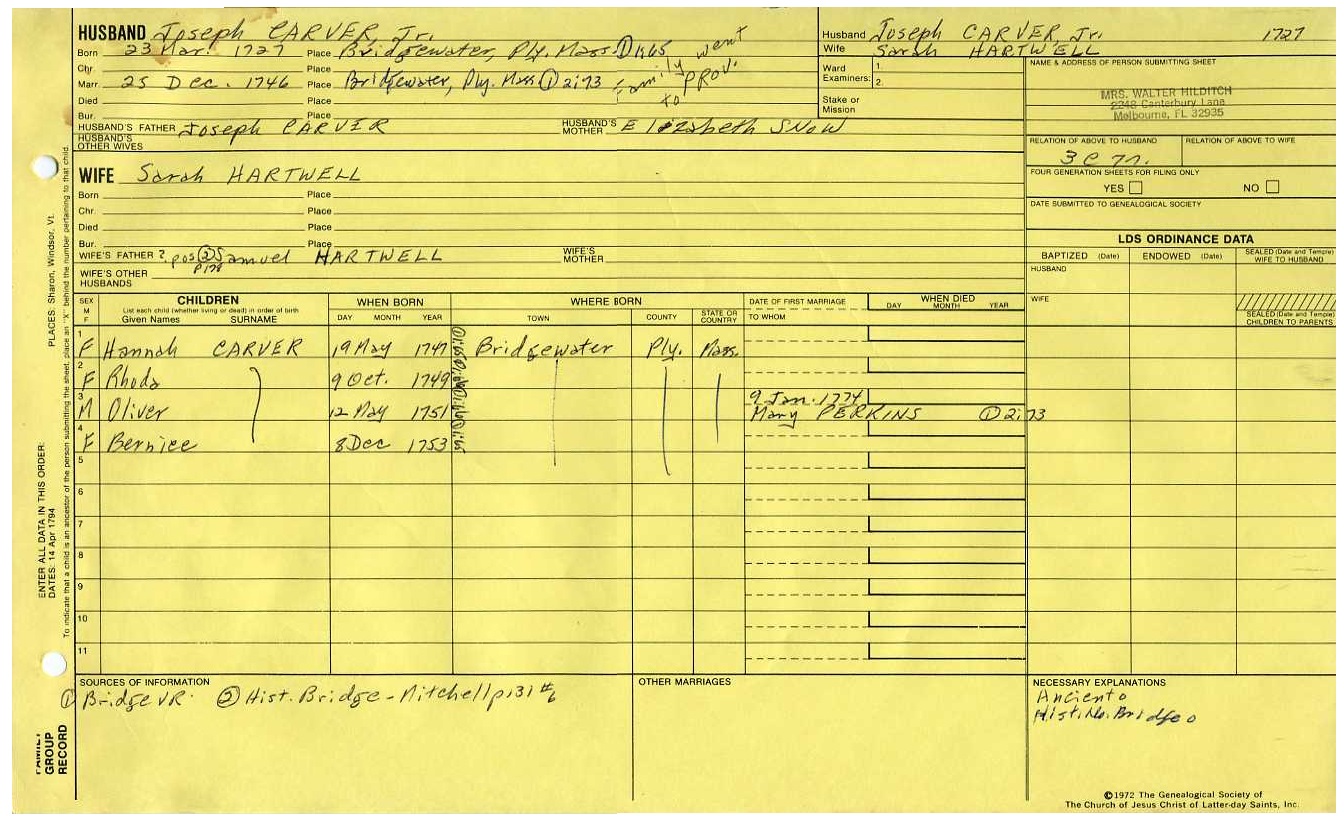 HUSBAND Joseph CARVER, Jr.
Born 23 Mar. 1727 Place Bridgewater, Ply. Mass ① 1:65
Chr. Place
Marr. 25 Dec. 1746 Place Bridgewater, Ply. Mass ① 2:73
family went to PROV.
Died Place
Bur. Place
HUSBAND'S FATHER Joseph CARVER HUSBAND'S MOTHER Elizabeth SNOW
HUSBAND'S OTHER WIVES
Husband Joseph CARVER, Jr. 1727
Wife Sarah HARTWELL
Ward Examiners: 1.
2.
Stake or Mission
NAME & ADDRESS OF PERSON SUBMITTING SHEET
MRS. WALTER HILDITCH
2248 Canterbury Lane
Melbourne, FL 32935
RELATION OF ABOVE TO HUSBAND RELATION OF ABOVE TO WIFE
FOUR GENERATION SHEETS FOR FILING ONLY
YES NO
DATE SUBMITTED TO GENEALOGICAL SOCIETY
WIFE Sarah HARTWELL
Born Place
Chr. Place
Died Place
Bur. Place
WIFE'S FATHER ? pos ② Samuel HARTWELL WIFE'S MOTHER
WIFE'S OTHER HUSBANDS
LDS ORDINANCE DATA
BAPTIZED (Date) ENDOWED (Date) SEALED (Date and Temple) WIFE TO HUSBAND
HUSBAND
WIFE
SEALED (Date and Temple) CHILDREN TO PARENTS
SEX M F CHILDREN List each child (whether living or dead) in order of birth Given Names SURNAME WHEN BORN DAY MONTH YEAR WHERE BORN TOWN COUNTY STATE OR COUNTRY DATE OF FIRST MARRIAGE TO WHOM WHEN DIED DAY MONTH YEAR
1 F Hannah CARVER 19 May 1747 Bridgewater Ply. Mass.
2 F Rhoda 9 Oct. 1749
3 M Oliver 12 May 1751 9 Jan. 1774 Mary PERKINS ① 2:73
4 F Bernice 8 Dec 1753
5
6
7
8
9
10
11
SOURCES OF INFORMATION
① Bridge VR ② Hist. Bridge - Mitchell p131 #6
OTHER MARRIAGES
NECESSARY EXPLANATIONS
Ancient o
Hist. No. Bridge o
©1972 The Genealogical Society of
The Church of Jesus Christ of Latter-day Saints, Inc.
ENTER ALL DATA IN THIS ORDER:
DATES: 14 Apr 1794 PLACES: Sharon, Windsor, Vt.
To indicate that a child is an ancestor of the person submitting the sheet, place an "X" behind the number pertaining to that child.
FAMILY GROUP RECORD